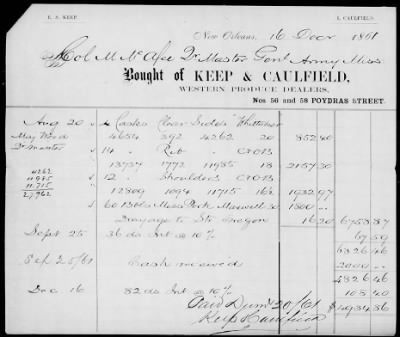 E. S. KEEP J. CAULFIELD.
New Orleans, 16 Decr 1861
Col M McAfee Qr Master Genl Army Miss
Bought of KEEP & CAULFIELD,
WESTERN PRODUCE DEALERS,
Nos 56 and 58 POYDRAS STREET.
Aug 20 4 Casks Clear Sides
4654 392 4262 20 852 40
Qr Master 14 " Rib " CROB
4262 13737 1772 11985 18 2157 30
11985 12 " Shoulders CROB
11.715 12809 1094 11715 16½ 1932 97
27,962
60 Bbls Mess Pork Maxwell 30 1800 "
Drayage to Str Oregon 16 20 6758 87
Sept 25 36 ds Int @ 10% 67 59
6826 46
Sep 25/61 Cash received 2000 "
4826 46
Dec 16 82 ds Int @ 10% 108 40
$4934 86
Paid 20/61
Keep & Caulfield